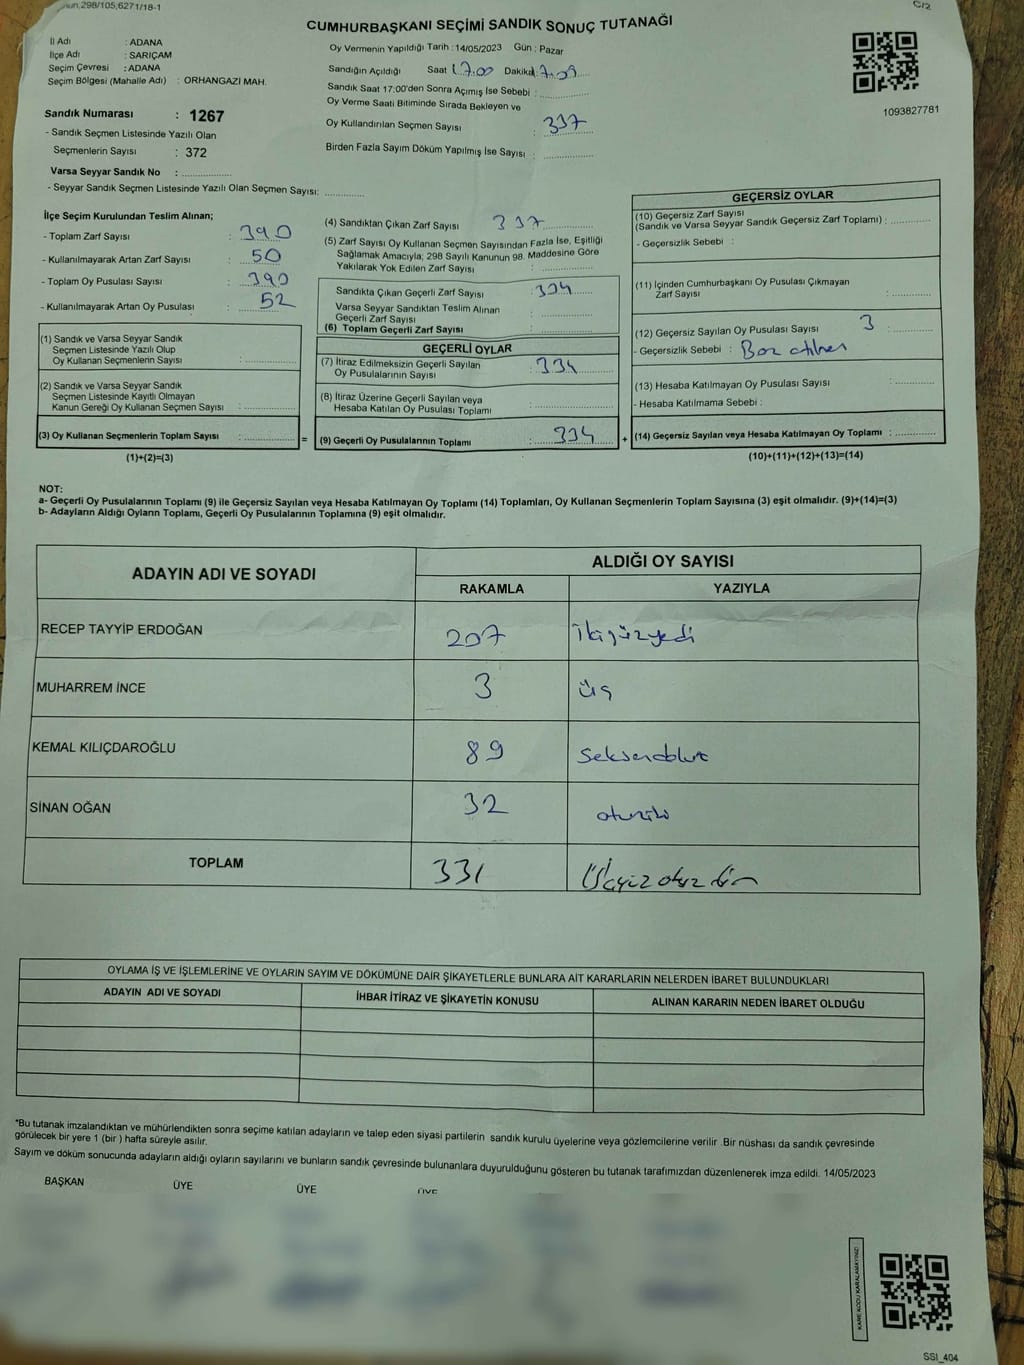 298/105,6271/18-1
C/2
CUMHURBAŞKANI SEÇİMİ SANDIK SONUÇ TUTANAĞI
İl Adı : ADANA
İlçe Adı : SARIÇAM
Seçim Çevresi : ADANA
Seçim Bölgesi (Mahalle Adı) : ORHANGAZİ MAH.
Oy Vermenin Yapıldığı Tarih : 14/05/2023 Gün : Pazar
Sandığın Açıldığı Saat 17.00 Dakika
Sandık Saat 17:00'den Sonra Açımış İse Sebebi :
Oy Verme Saati Bitiminde Sırada Bekleyen ve
Oy Kullandırılan Seçmen Sayısı : 337
Birden Fazla Sayım Döküm Yapılmış İse Sayısı :
1093827781
Sandık Numarası : 1267
- Sandık Seçmen Listesinde Yazılı Olan
Seçmenlerin Sayısı : 372
Varsa Seyyar Sandık No :
- Seyyar Sandık Seçmen Listesinde Yazılı Olan Seçmen Sayısı:
İlçe Seçim Kurulundan Teslim Alınan;
- Toplam Zarf Sayısı : 390
- Kullanılmayarak Artan Zarf Sayısı : 50
- Toplam Oy Pusulası Sayısı : 390
- Kullanılmayarak Artan Oy Pusulası : 52
(1) Sandık ve Varsa Seyyar Sandık
Seçmen Listesinde Yazılı Olup
Oy Kullanan Seçmenlerin Sayısı :
(2) Sandık ve Varsa Seyyar Sandık
Seçmen Listesinde Kayıtlı Olmayan
Kanun Gereği Oy Kullanan Seçmen Sayısı :
(3) Oy Kullanan Seçmenlerin Toplam Sayısı : =
(1)+(2)=(3)
(4) Sandıktan Çıkan Zarf Sayısı 337
(5) Zarf Sayısı Oy Kullanan Seçmen Sayısından Fazla İse, Eşitliği
Sağlamak Amacıyla; 298 Sayılı Kanunun 98. Maddesine Göre
Yakılarak Yok Edilen Zarf Sayısı :
Sandıkta Çıkan Geçerli Zarf Sayısı : 334
Varsa Seyyar Sandıktan Teslim Alınan
Geçerli Zarf Sayısı :
(6) Toplam Geçerli Zarf Sayısı :
GEÇERLİ OYLAR
(7) İtiraz Edilmeksizin Geçerli Sayılan
Oy Pusulalarının Sayısı : 334
(8) İtiraz Üzerine Geçerli Sayılan veya
Hesaba Katılan Oy Pusulası Toplamı :
(9) Geçerli Oy Pusulalarının Toplamı : 334 +
GEÇERSİZ OYLAR
(10) Geçersiz Zarf Sayısı
(Sandık ve Varsa Seyyar Sandık Geçersiz Zarf Toplamı) :
- Geçersizlik Sebebi :
(11) İçinden Cumhurbaşkanı Oy Pusulası Çıkmayan
Zarf Sayısı :
(12) Geçersiz Sayılan Oy Pusulası Sayısı 3 :
- Geçersizlik Sebebi :
(13) Hesaba Katılmayan Oy Pusulası Sayısı :
- Hesaba Katılmama Sebebi :
(14) Geçersiz Sayılan veya Hesaba Katılmayan Oy Toplamı :
(10)+(11)+(12)+(13)=(14)
NOT:
a- Geçerli Oy Pusulalarının Toplamı (9) ile Geçersiz Sayılan veya Hesaba Katılmayan Oy Toplamı (14) Toplamları, Oy Kullanan Seçmenlerin Toplam Sayısına (3) eşit olmalıdır. (9)+(14)=(3)
b- Adayların Aldığı Oyların Toplamı, Geçerli Oy Pusulalarının Toplamına (9) eşit olmalıdır.
ADAYIN ADI VE SOYADI
ALDIĞI OY SAYISI
RAKAMLA YAZIYLA
RECEP TAYYİP ERDOĞAN 207 ikiyüzyedi
MUHARREM İNCE 3 üç
KEMAL KILIÇDAROĞLU 89 seksendokuz
SİNAN OĞAN 32 otuziki
TOPLAM 331 Üçyüz otuz bir
OYLAMA İŞ VE İŞLEMLERİNE VE OYLARIN SAYIM VE DÖKÜMÜNE DAİR ŞİKAYETLERLE BUNLARA AİT KARARLARIN NELERDEN İBARET BULUNDUKLARI
ADAYIN ADI VE SOYADI İHBAR İTİRAZ VE ŞİKAYETİN KONUSU ALINAN KARARIN NEDEN İBARET OLDUĞU
*Bu tutanak imzalandıktan ve mühürlendikten sonra seçime katılan adayların ve talep eden siyasi partilerin sandık kurulu üyelerine veya gözlemcilerine verilir .Bir nüshası da sandık çevresinde
görülecek bir yere 1 (bir ) hafta süreyle asılır.
Sayım ve döküm sonucunda adayların aldığı oyların sayılarını ve bunların sandık çevresinde bulunanlara duyurulduğunu gösteren bu tutanak tarafımızdan düzenlenerek imza edildi. 14/05/2023
BAŞKAN ÜYE ÜYE ÜYE
KARE KODU KARALAMAYINIZ!
SSI_404